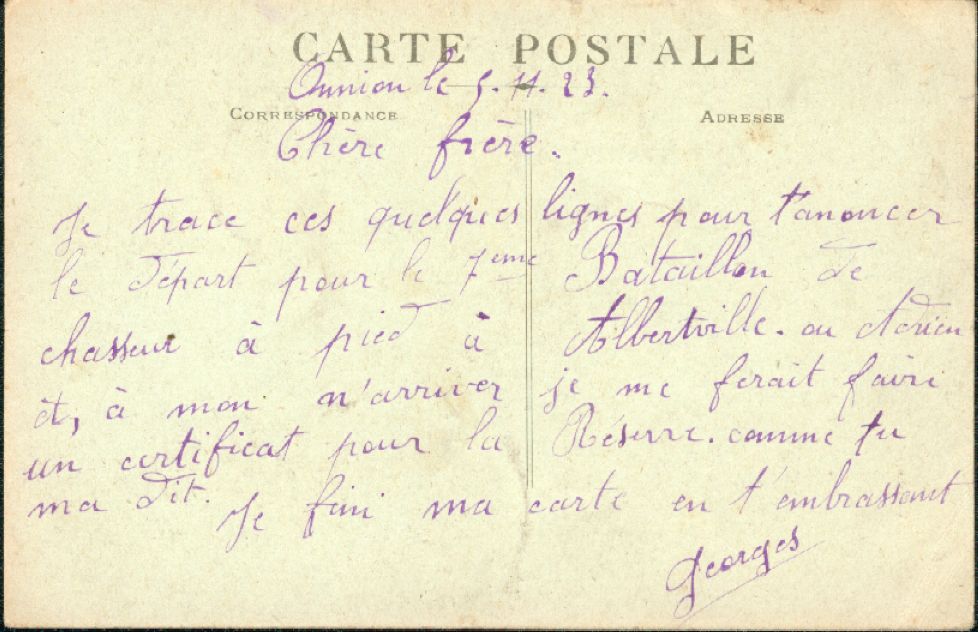 CARTE POSTALE
Onnion le 5. 11. 23.
CORRESPONDANCE ADRESSE
Chère frère.
Je trace ces quelques lignes pour t'anoncer
le départ pour le 7eme Bataillon de
chasseur à pied à Albertville. ou Adrien
èt, à mon n'arriver je me ferait faire
un certificat pour la Réserve. comme tu
ma dit. Je fini ma carte en t'embrassant
Georges